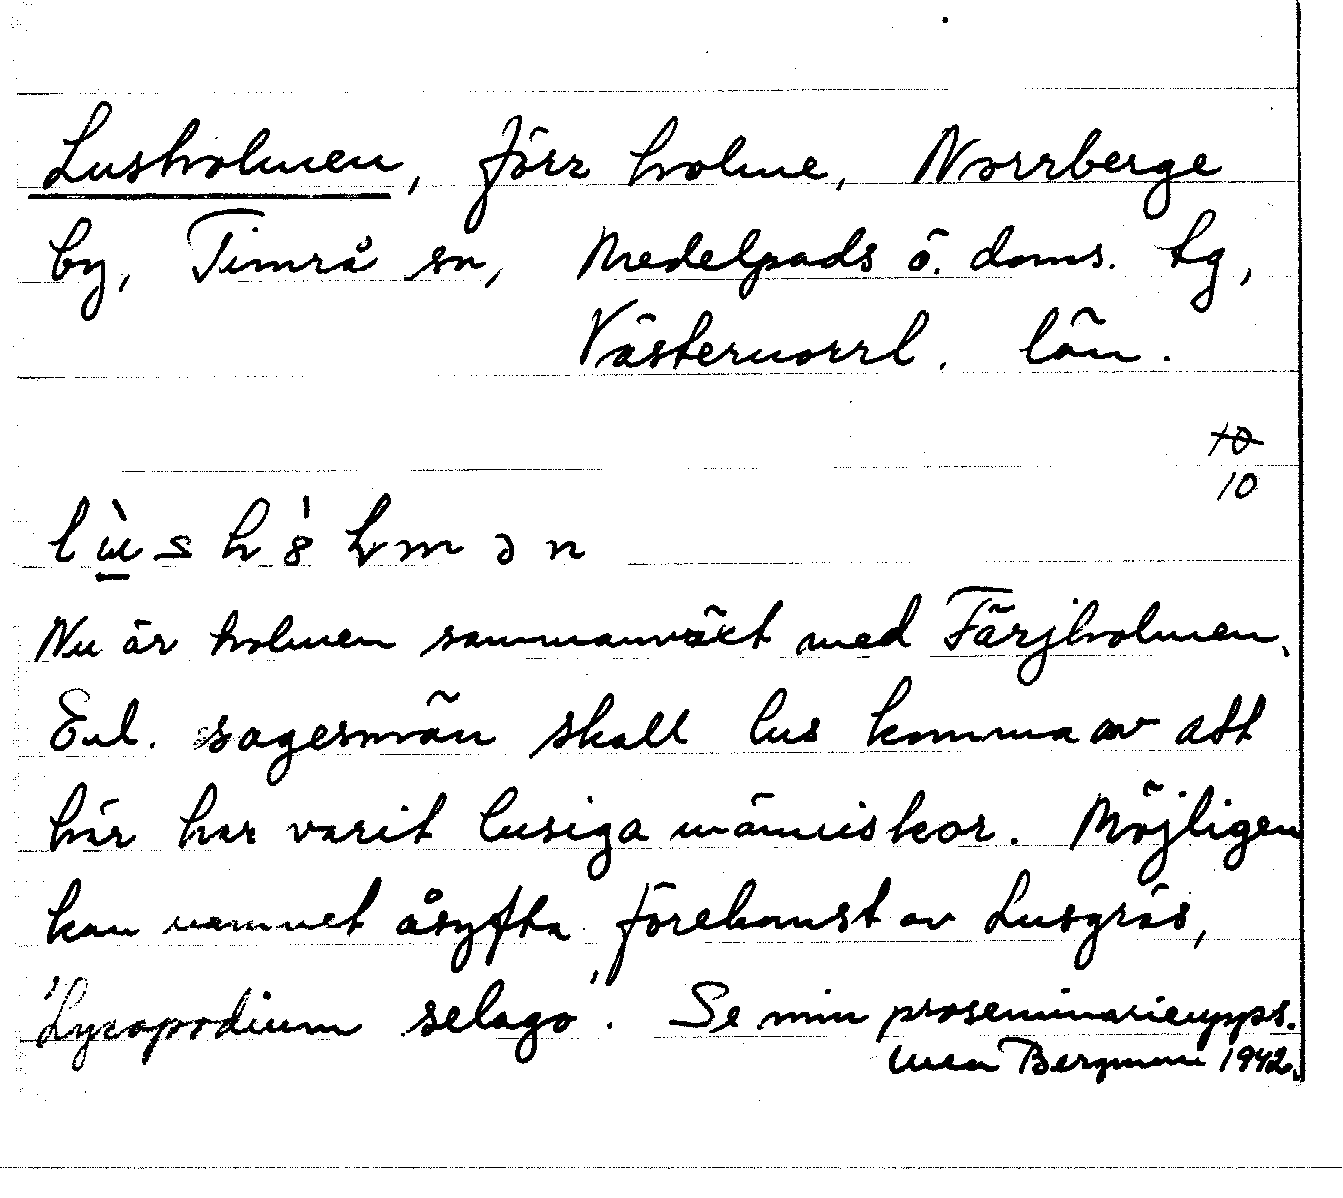 Lusholmen, förr holme, Norrberge
by, Timrå sn, Medelpads ö. doms. tg,
Västernorrl. län.
10
10
Nu är holmen sammanväxt med Färjholmen.
Enl. sagesmän skall lus komma av att
här har varit lusiga människor. Möjligen
kan namnet åsyfta förekomst av Lusgräs,
'Lycopodium selago'. Se min proseminarieupps.
Bergman 1942.